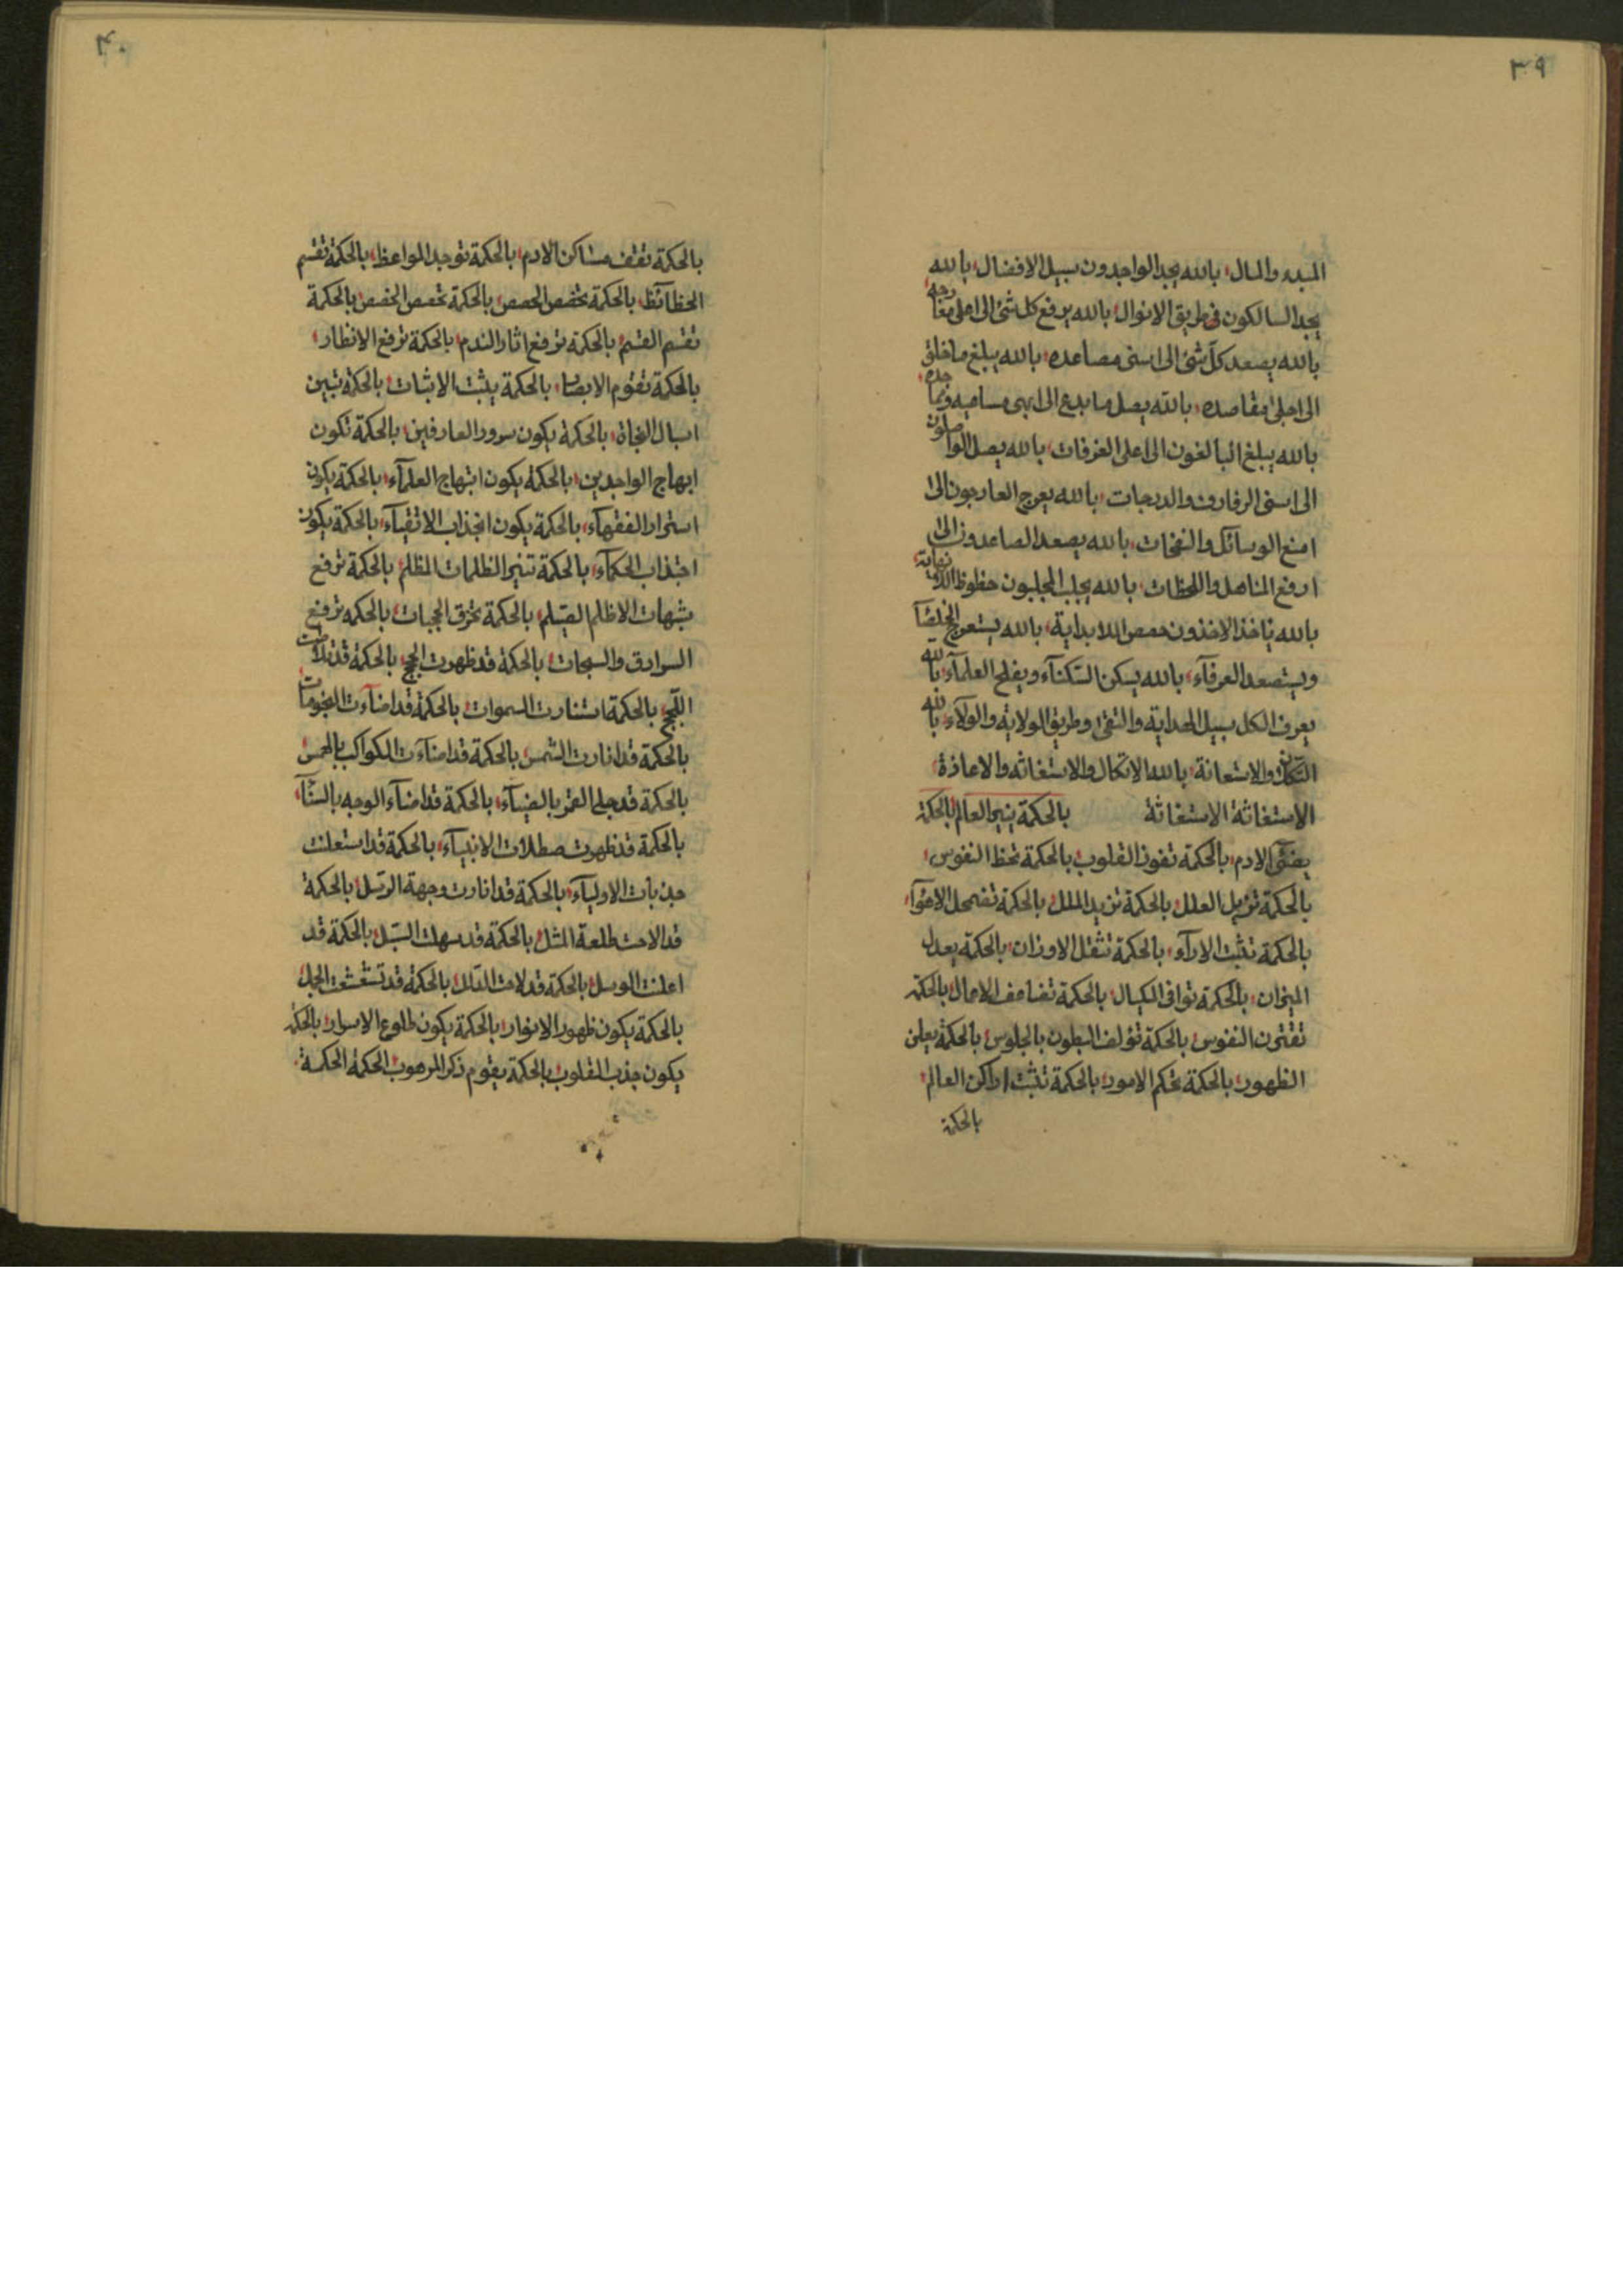 ٣٩
المبدء والمال بالله يجد الواجدون سبيل الافضال بالله
يجد السالكون فى طريق الانوال بالله يرفع كل شئ الى اعلى معارجه
بالله يصعد كل شئ الى اسنى مصاعده بالله يبلغ ما خلق
الى اجلى مقاصده بالله يصل ما بدع الى ابهى مساميه
بالله يبلغ البالغون الى اعلى الغرفات بالله يصل الواصلون
الى اسنى الرفارف والدرجات بالله يعرج العارجون الى
امنع الوسائل والنفحات بالله يصعد الصاعدون الى
ارفع المناهل واللحظات بالله يجلب المجلبون حظوظ اللانهاية
بالله ياخذ الاخذون حصص اللابداية بالله يستعرج الخلصآ
ويستصعد العرفآء بالله يسكن السكنآء ويفلح العلمآء بالله
يعرف الكل سبيل الهداية والتقى وطريق الولاية والولاء بالله
التكلان والاستعانة بالله الاتكال والاستغاثه والاعاذة
الاستغاثة الاستغاثة بالحكمة ينير العالم بالحكمة
يضئ الادم بالحكمة تفوز القلوب بالحكمة تحظ النفوس
بالحكمة تزيل العلل بالحكمة تزيد الملل بالحكمة تضمحل الاهوآء
بالحكمة تثبت الارآء بالحكمة تثقل الاوزان بالحكمة يعدل
الميزان بالحكمة توافى الكيال بالحكمة تضاعف الاعمال بالحكمة
تقترن النفوس بالحكمة تؤلف البطون بالجلوس بالحكمة يعلن
الظهور بالحكمة تحكم الامور بالحكمة تثبت اراكن العالم
بالحكمة
٤٠
بالحكمة تقف مساكن الادم بالحكمة توجد المواعظ بالحكمة تقسم
الحظآئظ بالحكمة تخصص الحصص بالحكمة تحصص الخصص بالحكمة
تقسم القسم بالحكمة ترفع اثار الندم بالحكمة ترفع الانظار
بالحكمة تقوم الابصار بالحكمة يثبت الاثبات بالحكمة تبين
اسبال النجاة بالحكمة يكون سرور العارفين بالحكمة تكون
ابهاج الواجدين بالحكمة يكون ابتهاج العلمآء بالحكمة يكون
استرار الفقهآء بالحكمة يكون انجذاب الاتقيآء بالحكمة يكون
اجتذاب الحكمآء بالحكمة تنير الظلمات المظلم بالحكمة ترفع
شبهات الاظلم القيلم بالحكمة تخرق الحجبات بالحكمه ترفع
السوادق والسبحات بالحكمة قد ظهرت الحجج بالحكمة قد تلاطمت
اللجج بالحكمة استنارت السموات بالحكمة قد اضآءت النجومات
بالحكمة قد انارت الشمس بالحكمة قد اضآءت الكواكب
بالحكمة قد جلى القمر بالضيآء بالحكمة قد اضآء الوجه بالسنآء
بالحكمة قد ظهرت الانبيآء بالحكمة قد استعلنت
جذبات الاوليآء بالحكمة قد انارت وجهة الرسل بالحكمة
قد الاحت طلعة المثل بالحكمة قد سهلت السبل بالحكمة قد
اعلنت الوسل بالحكمة قد لاحت الدلل بالحكمة قد تشعشعت الجلل
بالحكمة يكون ظهور الانوار بالحكمة يكون طلوع الاسرار بالحكمة
يكون جذب القلوب بالحكمة يقوم ذكر المرهوب الحكمة الحكمة